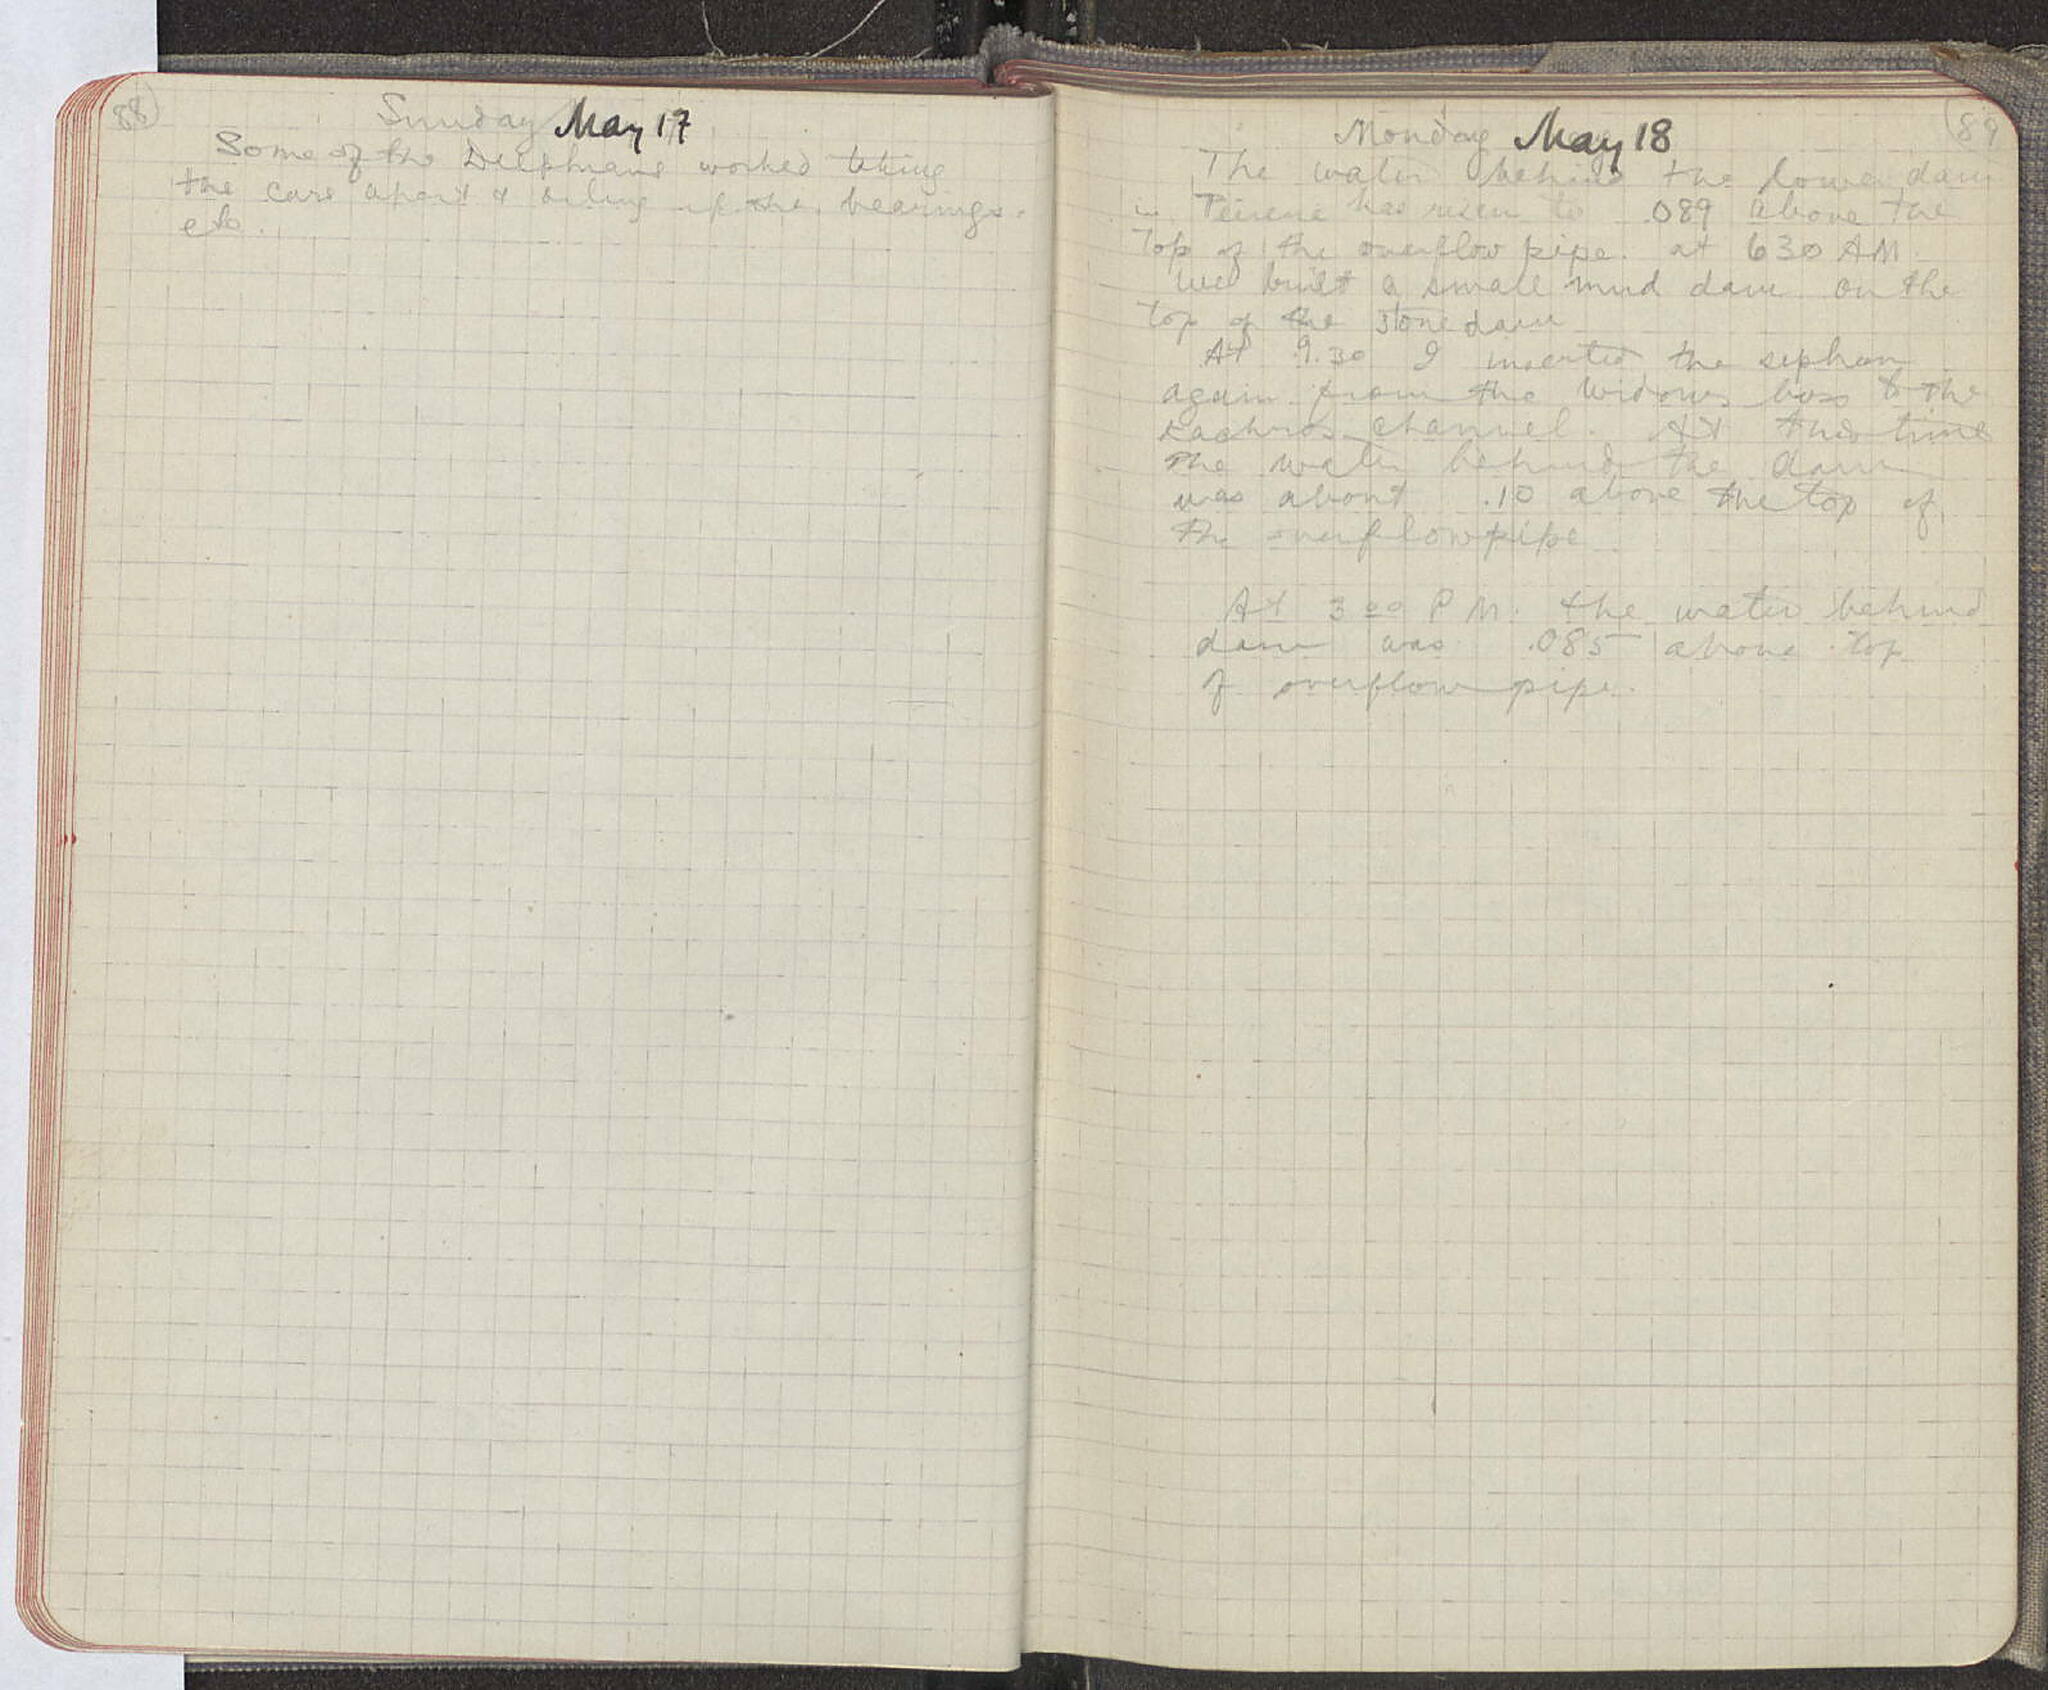 88
Sunday May 17
Some of the Delphians worked taking
the cars apart & oiling up the bearings.
etc.
89
Monday May 18
The water behind the lower dam
in Peirene has risen to .089 above the
top of the overflow pipe at 630 AM
We built a small mud dam on the
top of the stone dam
At 9.30 I inserted the siphon
again from the widows box to the
channel. At this time
the water behind the dam
was about .10 above the top of
the overflow pipe
At 3 00 P M. the water behind
dam was .085 above top
of overflow pipe.